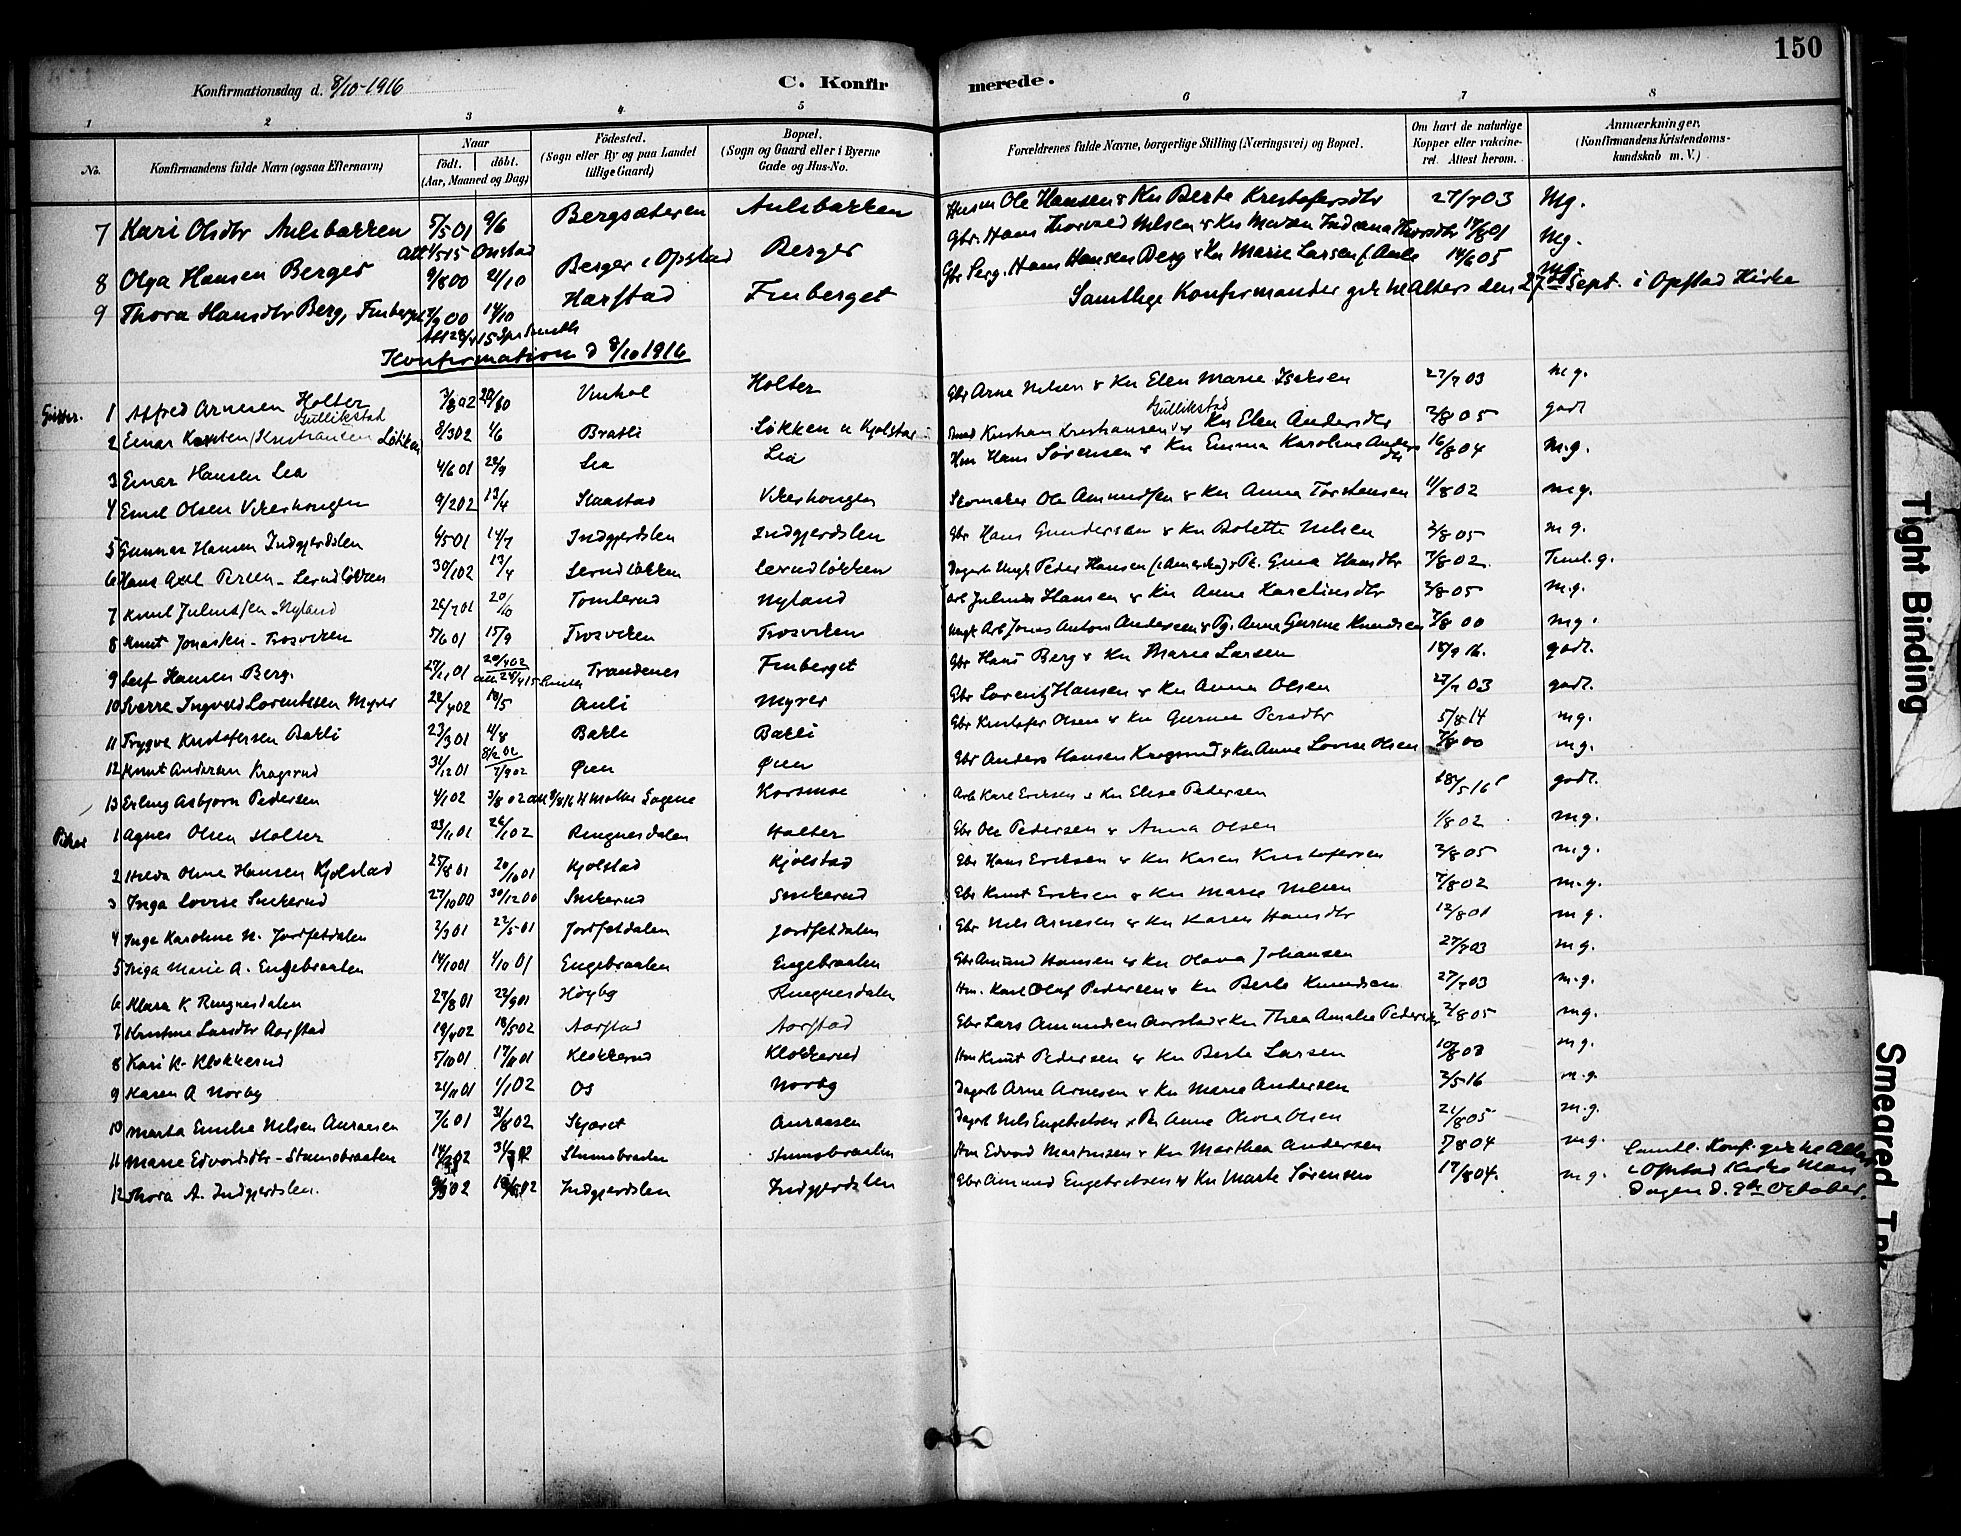 150
Konfirmationsdag d. 8/10-1916
C. Konfirmerede.
1 2 3 4 5 6 7 8
No. Konfirmandens fulde Navn (ogsaa Efternavn) Naar født. døbt. (Aar, Maaned og Dag) Fødested. (Sogn eller By og paa Landet tillige Gaard) Bopæl. (Sogn og Gaard eller i Byerne Gade og Hus-No. Forældrenes fulde Navne, borgerlige Stilling (Næringsvei) og Bopæl. Om havt de naturlige Kopper eller vakcineret. Attest herom. Anmærkninger. (Konfirmandens Kristendomskundskab m. V.)
7 Kari Olsdtr Aulibakken 5/5 01 9/6 Bergsæteren Aulibakken Husm Ole Hansen & Kn Berte Kristofersdtr 27/7 03 Mg.
8 Olga Hansen Berger 9/8 00 21/10 Berger i Opstad Berger Gbr. Hans Thorvald Nilsen & Kn 17/8 01 Mg.
9 Thora Hansdtr Berg, Finberget 00 14/10 Harstad Finberget Gbr Serg. Hans Hansen Berg & Kn Marie Larsen 14/6 05 mg.
Samtlige Konfirmander gik til Alters den 27de Sept. i Opstad Kirke
Konfirmation d 8/10 1916
1 Alfred Arnesen Holter 3/8 02 Vinhol Holter Gbr Arne Nilsen & Kn Elen Marie Isaksen 27/7 03 m.g.
2 Einar Kristiansen Løkken Gullikstad 8/3 02 1/6 Bratli Løkken u Kjolstad Kristian Kristiansen Gullikstad & Kn Elen Andersdtr 2/8 05 godt
3 Einar Hansen Lia 4/6 01 22/9 Lia Lia Hm Hans Sørensen & Kn Emma Karoline Andersdtr 16/8 04 m.g.
4 Emil Olsen Vikerhougen 9/2 02 13/4 Skaastad Vikerhougen Skomaker Ole Amundsen & Kn Anna Torstensen 11/8 02 mg.
5 Gunnar Hansen Indgjerdslen 4/5 01 14/7 Indgjerdslen Indgjerdslen Gbr Hans Gundersen & Kn Bolette Nilsen 2/8 05 m g.
6 Hans Axel Persen - Lerudløkken 30/1 02 13/4 Lerudløkken Lerudløkken Peder Hansen (i Amerika) & Pk. Gina Hansdtr 7/8 02 Teml. g.
7 Knut Juliussen - Nyland 26/7 01 20/10 Tomterud Nyland Arb Julius Hansen & Kn Anne Karelinsdtr 2/8 05 m.g.
8 Knut Jonassen - Trosviken 5/6 01 15/9 Trosviken Trosviken Ungk Arb Jonas Anton Andersen & Pg. Anne Gurine Knudsen 7/8 00 mg.
9 Leif Hansen Berg. 27/11 01 20/4 02 Trandenes Finberget Gbr Hans Berg & Kn Marie Larsen 18/9 16. godt.
10 Sverre Ingvald Lorentzsen Myrer 22/4 02 18/5 Auli Myrer Gbr Lorentz Hansen & Kn Anna Olsen 27/7 03 godt.
11 Trygve Kristofersen Bakli 23/3 01 11/8 Bakli Bakli Gbr Kristofer Olsen & Kn Gurine Persdtr 5/8 14 mg.
12 Knut Andersen Kragsrud 31/12 01 8/2 02 7/9 02 Øien Øien Gbr Anders Hansen Kragsrud & Kn Anne Lovise Olsen 7/8 00 mg.
13 Erling Asbjørn Pedersen 4/1 02 3/8 02 Korsmoe Arb Karl Eriksen & Kn Elise Pedersen 18/5 16 godt.
Piker 1 Agnes Olsen Holter 23/11 01 26/1 02 Ringnesdalen Holter Gbr Ole Pedersen & Anna Olsen 1/8 02 mg.
2 Hilda Oline Hansen Kjolstad 25/8 01 20/10 01 Kjolstad Kjolstad Gbr Hans Eriksen & Kn Karen Kristofersen 2/8 05 mg.
3 Inga Lovise Snikerud 27/10 00 30/12 00 Snikerud Snikerud Gbr Knut Eriksen & Kn Marie Nilsen 7/8 02 m.g.
4 Inga Karoline N. Jordfetdalen 2/3 01 22/5 01 Jordfetdalen Jordfetdalen Gbr Nils Arnesen & Kn Karen Hansdtr 12/8 01 m g.
5 Inga Marie A. Engebraaten 14/10 01 1/10 01 Engebraaten Engebraaten Gbr Amund Hansen & Kn Olava Johansen 27/7 03 mg.
6 Klara K Ringnesdalen 27/8 01 22/9 01 Høyby Ringnesdalen Hm. Karl Olaf Pedersen & Kn Berte Knudsen 27/7 03 m.g.
7 Kristine Larsdtr Aarstad 19/4 02 18/5 02 Aarstad Aarstad Gbr Lars Amundsen Aarstad & Kn Thea Amalie Pedersen 2/8 05 mg.
8 Kari K. Klokkerud 5/10 01 17/11 01 Klokkerud Klokkerud Hm Knut Pedersen & Kn Berte Larsen mg.
9 Karen A Norby 24/11 01 1/1 02 Os Norby Dagarb Arne Arnesen & Kn Marie Andersen 2/5 16 m.g.
10 Marta Emilie Nilsen Auraasen 7/6 01 31/8 02 Skjæret Auraasen Dagarb Nils Engebretsen & Kn Anne Olava Olsen 21/8 05 m.g.
11 Marie Edvardsdtr - Stumobraaten Stumobraaten Stumobraaten Hm Edvard Martinsen & Kn Marthea Andersen 5/8 04 mg.
12 Thora A. Indgjerdslen. Indgjerdslen Indgjerdslen Gbr Amund Engebretsen & Kn Marte Sørensen 17/8 04. mg.
Samtl. Konf. gik til Alters
i Opstad Kirke Man
dagen d. 9de October.
Tight Binding
Smeared